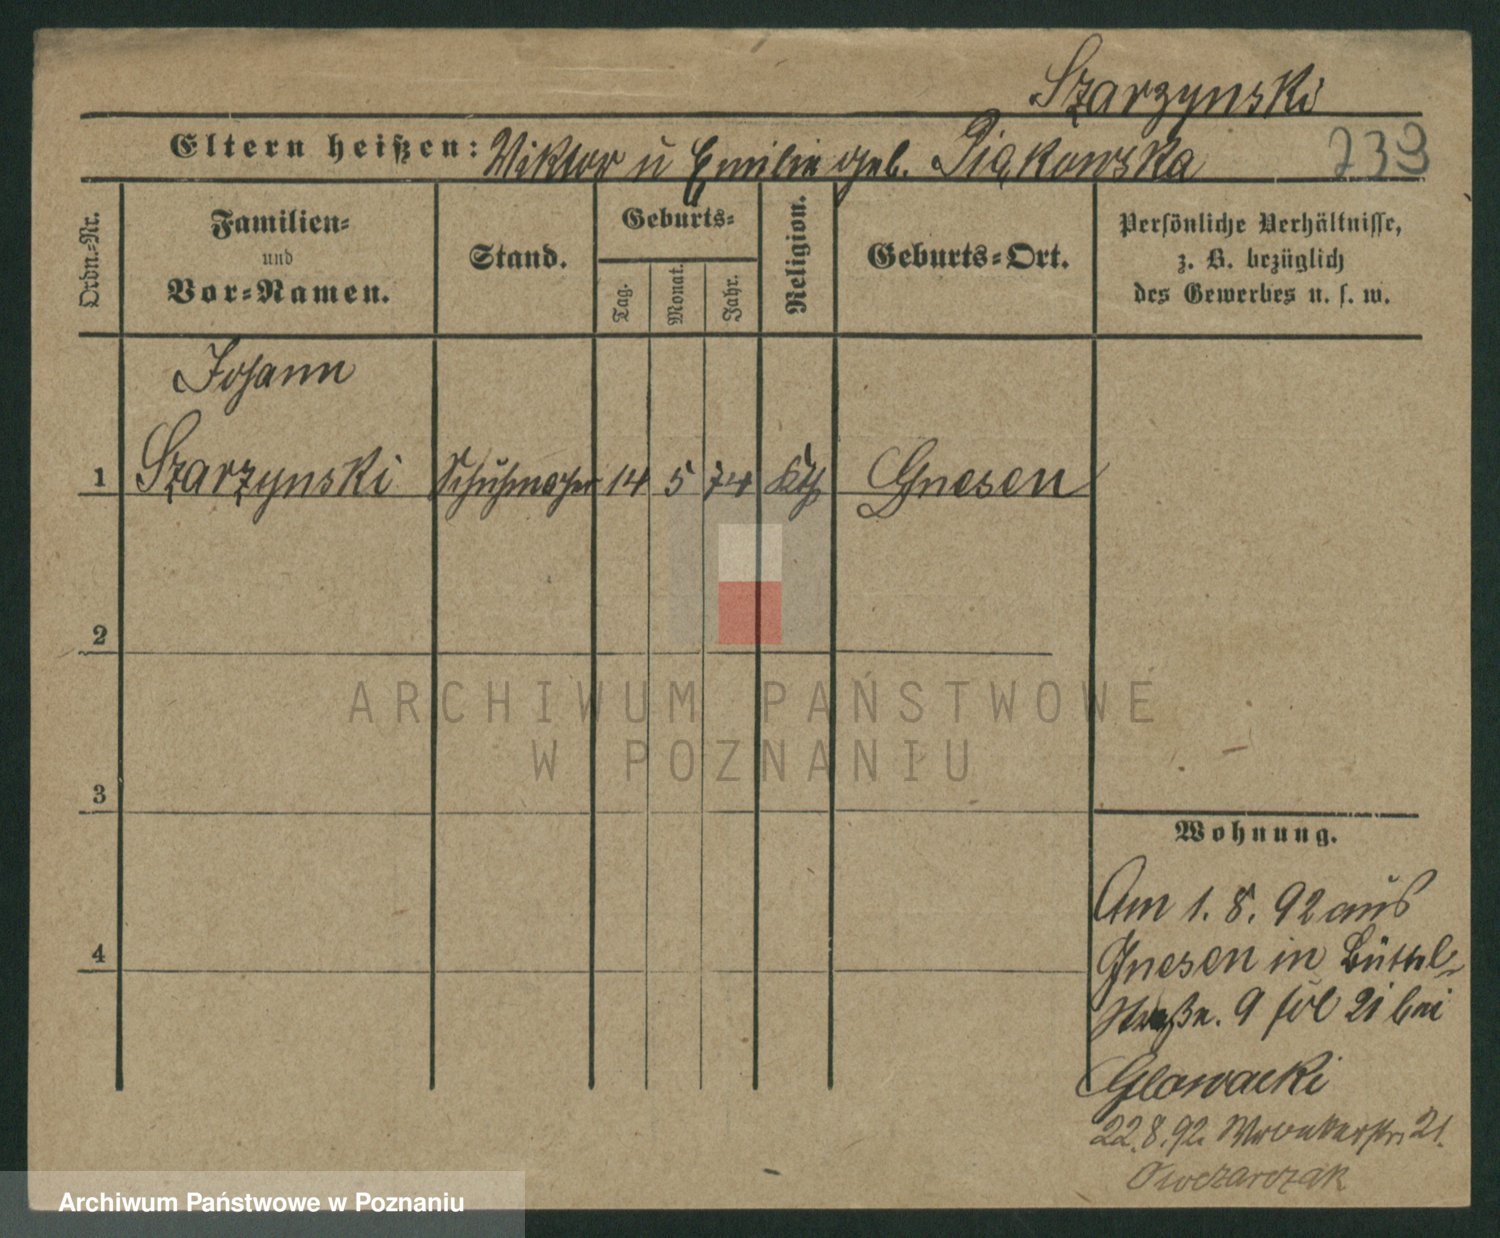 Szarzynski
Eltern heißen: Viktor u Emilie geb. Piąkowska 739
Ordn.-Nr.
Familien-
und
Vor-Namen.
Stand.
Geburts-
Tag.
Monat.
Jahr.
Religion.
Geburts-Ort.
Persönliche Verhältnisse,
z. B. bezüglich
des Gewerbes u. s. w.
Johann
1 Szarzynski Schuhmacher 14 5 74 Kth Gnesen
2
3
4
Wohnung.
Am 1. 8. 92 aus
Gnesen in Büttel-
Straße. 9 fol 21 bei
Glowacki
22.8.92. Wronkerstr. 21.
Owczarczak
ARCHIWUM PAŃSTWOWE
W POZNANIU
Archiwum Państwowe w Poznaniu